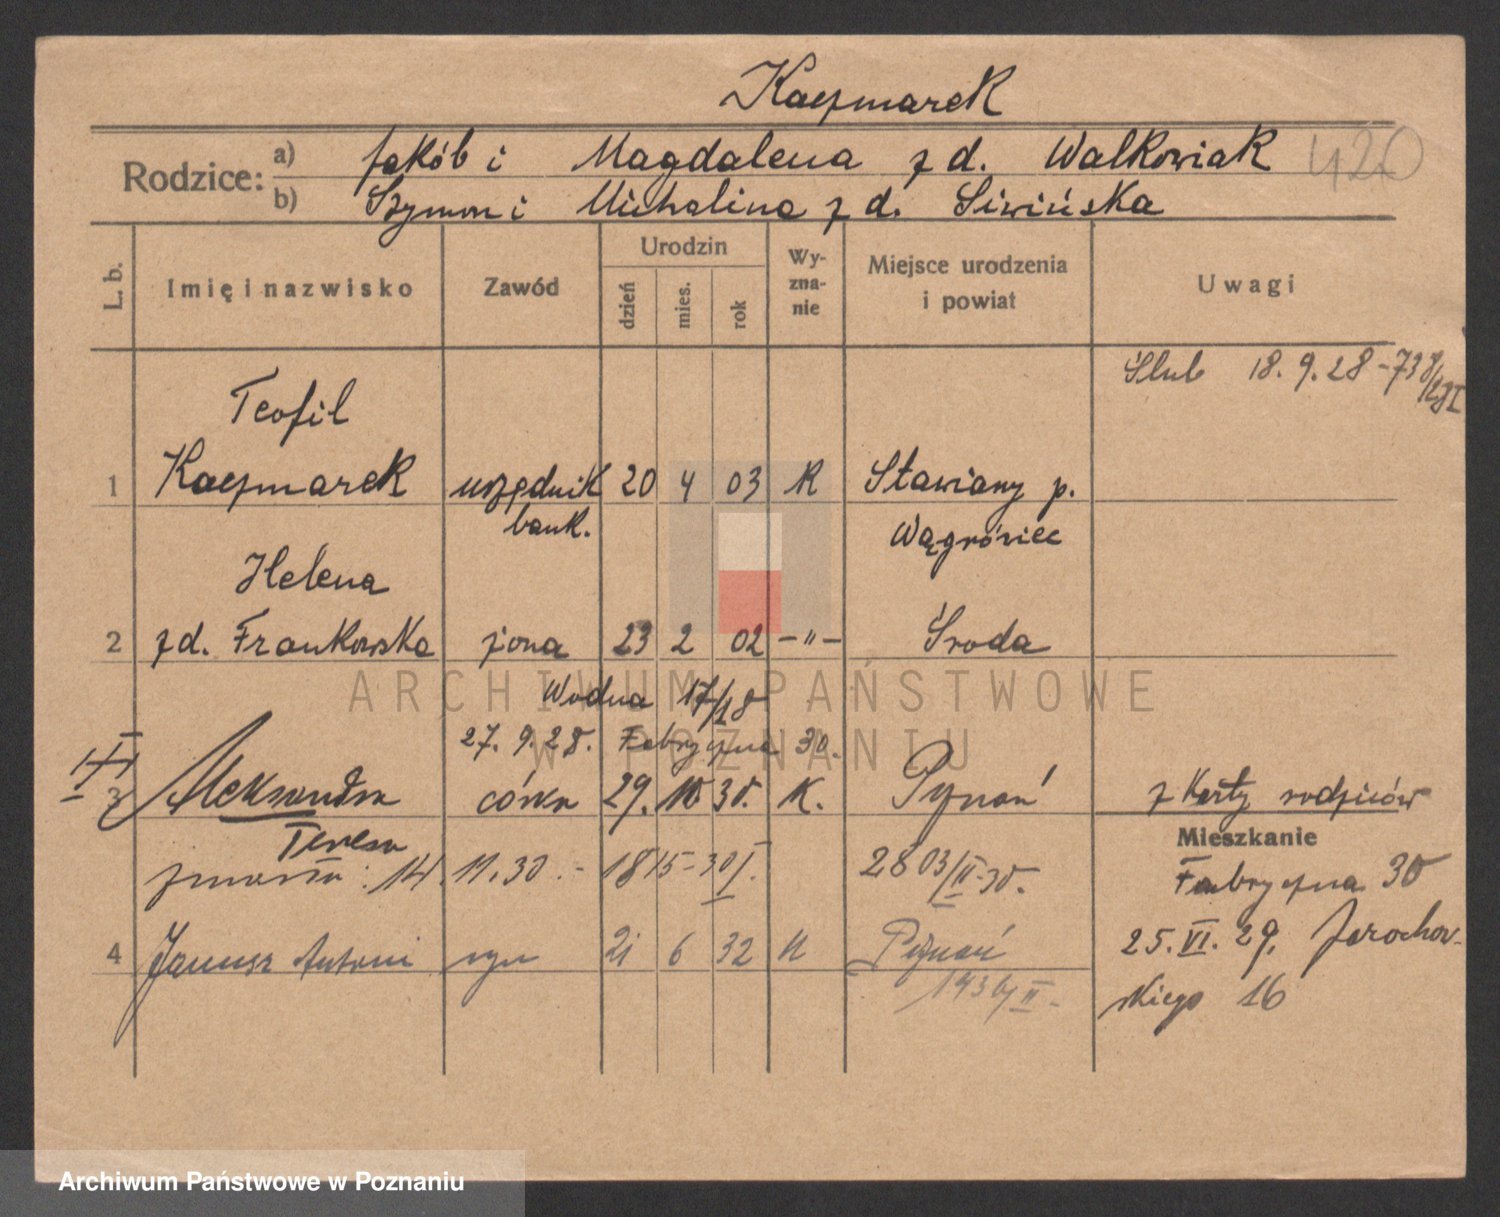 Kaczmarek
420
Rodzice: a) Jakób i Magdalena z d. Walkowiak
b) Szymon i Michalina z d. Siwińska
L. b. Imię i nazwisko Zawód Urodzin dzień mies. rok Wy-zna-nie Miejsce urodzenia i powiat Uwagi
Ślub 18. 9. 28 - 738/
Teofil
1 Kaczmarek urzędnik 20 4 03 R Stawiany p.
bank. Wągrówiec
Helena
2 z d. Frankowska żona 23 2 02 -"- Środa
Wodna 17/18
27. 9. 28. Fabryczna 30.
3 Aleksandra córka 29. 10. 30. K. Poznań z Karty rodziców
Teresa
Mieszkanie
zmarła: 14. 11. 30. - 1815-30/I. 2803/II-30. Fabryczna 30
4 Janusz Antoni syn 21 6 32 K Poznań 25. VI. 29. Jarochow-
skiego 16
ARCHIWUM PAŃSTWOWE
W POZNANIU
Archiwum Państwowe w Poznaniu